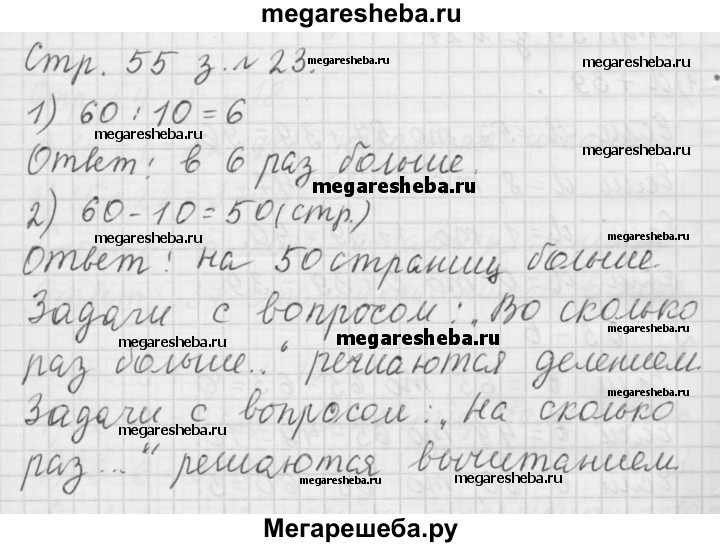 megaresheba.ru
Стр. 55 з. № 23.
megaresheba.ru
1) 60 : 10 = 6
megaresheba.ru
megaresheba.ru
Ответ: в 6 раз больше.
megaresheba.ru
2) 60 - 10 = 50 (стр.)
megaresheba.ru
megaresheba.ru
Ответ: на 50 страниц больше.
Задачи с вопросом: „Во сколько
megaresheba.ru
megaresheba.ru
раз больше..“ решаются делением.
megaresheba.ru
Задачи с вопросом: „На сколько
megaresheba.ru
megaresheba.ru
раз...“ решаются вычитанием.
megaresheba.ru
megaresheba.ru
Мегарешеба.ру